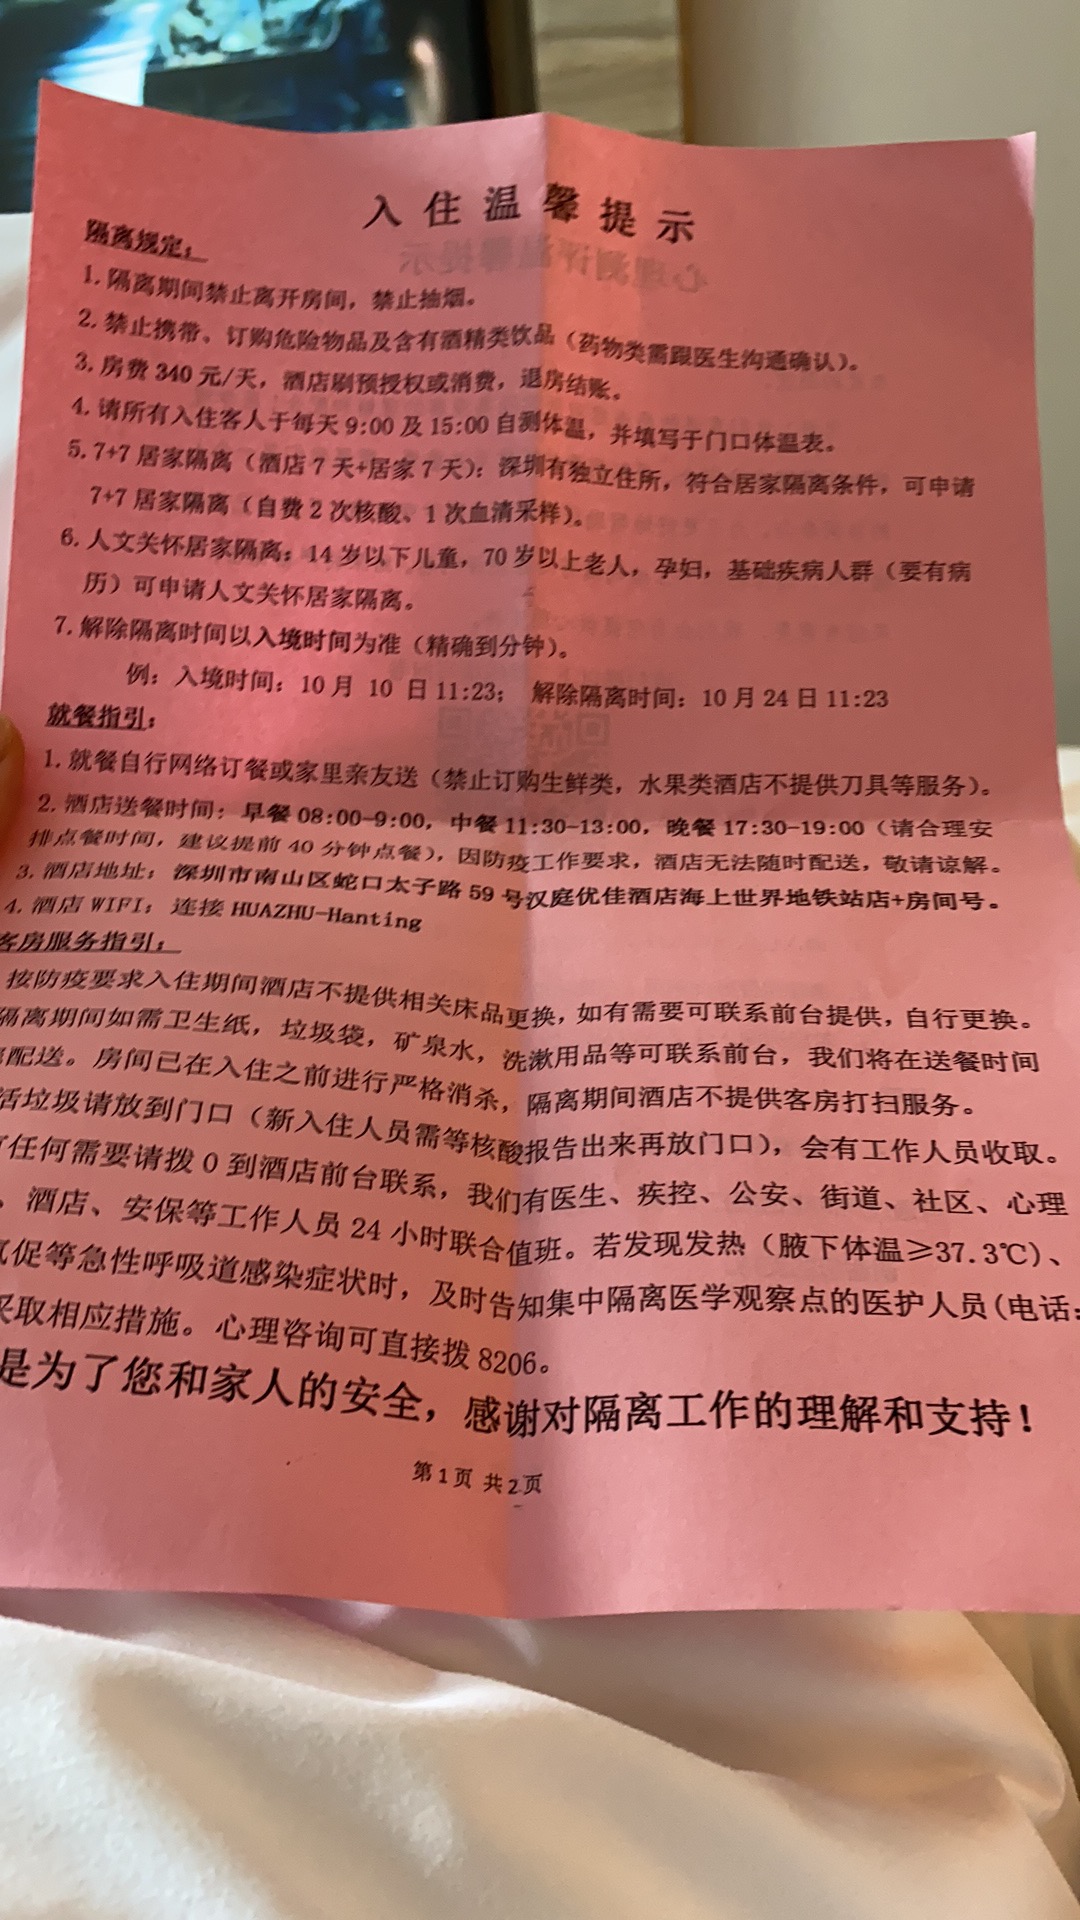 入住温馨提示
隔离规定：
1. 隔离期间禁止离开房间，禁止抽烟。
2. 禁止携带、订购危险物品及含有酒精类饮品（药物类需跟医生沟通确认）。
3. 房费 340 元/天，酒店刷预授权或消费，退房结账。
4. 请所有入住客人于每天 9:00 及 15:00 自测体温，并填写于门口体温表。
5. 7+7 居家隔离（酒店 7 天+居家 7 天）：深圳有独立住所，符合居家隔离条件，可申请
7+7 居家隔离（自费 2 次核酸、1 次血清采样）。
6. 人文关怀居家隔离：14 岁以下儿童，70 岁以上老人，孕妇，基础疾病人群（要有病
历）可申请人文关怀居家隔离。
7. 解除隔离时间以入境时间为准（精确到分钟）。
例：入境时间：10 月 10 日 11:23； 解除隔离时间：10 月 24 日 11:23
就餐指引：
1. 就餐自行网络订餐或家里亲友送（禁止订购生鲜类，水果类酒店不提供刀具等服务）。
2. 酒店送餐时间：早餐 08:00-9:00，中餐 11:30-13:00，晚餐 17:30-19:00（请合理安
排点餐时间，建议提前 40 分钟点餐），因防疫工作要求，酒店无法随时配送，敬请谅解。
3. 酒店地址：深圳市南山区蛇口太子路 59 号汉庭优佳酒店海上世界地铁站店+房间号。
4. 酒店 WIFI：连接 HUAZHU-Hanting
客房服务指引：
按防疫要求入住期间酒店不提供相关床品更换，如有需要可联系前台提供，自行更换。
隔离期间如需卫生纸，垃圾袋，矿泉水，洗漱用品等可联系前台，我们将在送餐时间
配送。房间已在入住之前进行严格消杀，隔离期间酒店不提供客房打扫服务。
活垃圾请放到门口（新入住人员需等核酸报告出来再放门口），会有工作人员收取。
任何需要请拨 0 到酒店前台联系，我们有医生、疾控、公安、街道、社区、心理
、酒店、安保等工作人员 24 小时联合值班。若发现发热（腋下体温≥37.3℃）、
气促等急性呼吸道感染症状时，及时告知集中隔离医学观察点的医护人员(电话：
采取相应措施。心理咨询可直接拨 8206。
是为了您和家人的安全，感谢对隔离工作的理解和支持！
第 1 页 共 2 页